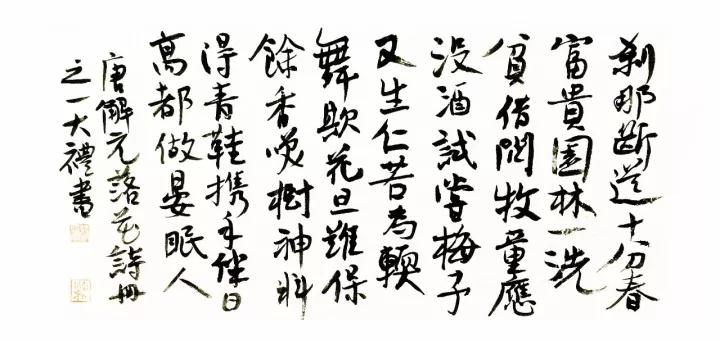 刹那断送十分春
富貴園林一洗
貧借問牧童應
没酒試嘗梅子
又生仁若為輭
舞欺花旦難保
餘香咲樹神料
得青鞋携手伴日
高都做晏眠人
唐解元落花詩冊
之一大禮書